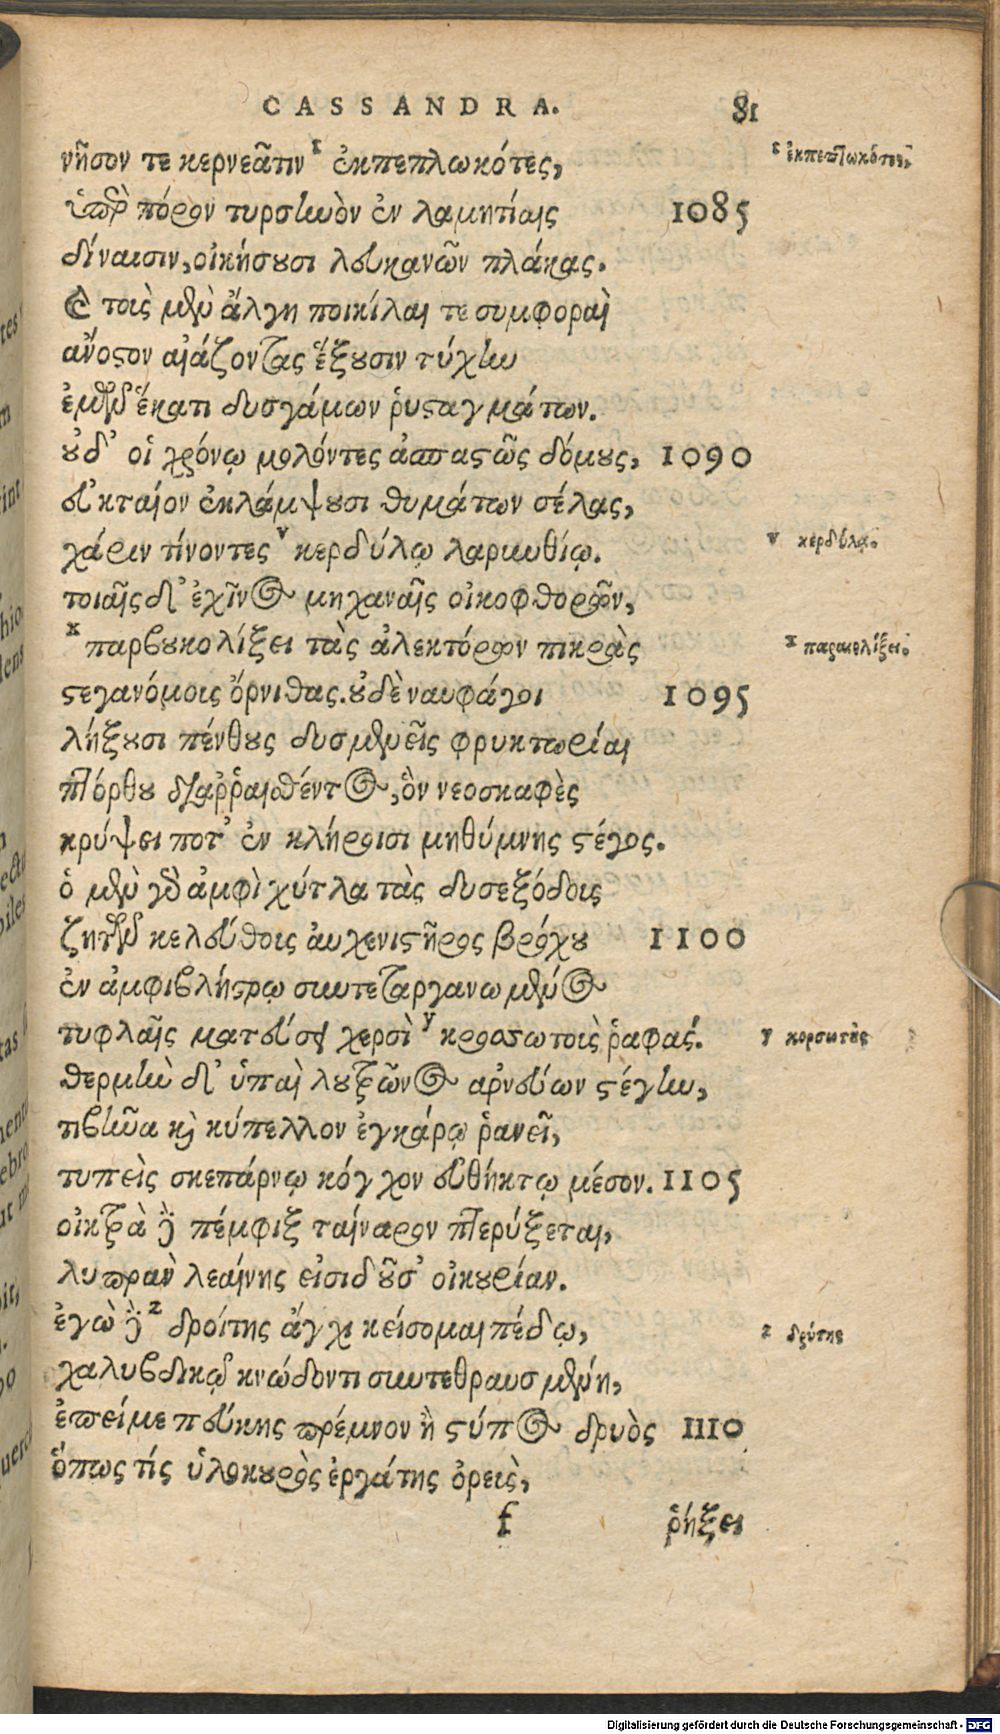 CASSANDRA. 81
νῆσον τε κερνεᾶτιν ἐκπεπλωκότες,
ὑπὲρ πόρον τυρσηνὸν ἐν λαμητίαις 1085
δίναισιν, οἰκήσουσι λευκανῶν πλάκας.
Καὶ τοῖς μὲν ἄλγη ποικίλαι τε συμφοραὶ
ἄνοστον αἰάζοντας ἕξουσιν τύχην
ἐμῶν ἕκατι δυσγάμων ῥυσταγμάτων.
οὐδ' οἱ χρόνῳ μολόντες ἀσπαστῶς δόμους, 1090
εὐκταῖον ἐκλάμψουσι θυμάτων σέλας,
χάριν τίνοντες ᵛ κερδύλῳ λαρυνθίῳ.
τοιαῖς δ' ἐχῖνος μηχαναῖς οἰκοφθορῶν,
ˣ παρβουκολίξει τὰς ἀλεκτόρων πικρὰς
στεγανόμοις ὄρνιθας. οὐδὲ ναυφάγοι 1095
λήξουσι πένθους δυσμενεῖς φρυκτωρίαι
πτόρθου διαῤῥαισθέντος, ὃν νεοσκαφὲς
κρύψει ποτ' ἐν κλήροισι μηθύμνης στέγος.
ὁ μὲν γὰρ ἀμφὶ χύτλα τὰς δυσεξόδοις
ζητῶν κελεύθοις αὐχενιστῆρος βρόχου 1100
ἐν ἀμφιβλήστρῳ συντεταργανωμένος
τυφλαῖς ματεύσει χερσὶ ʸ κροσωτοῖς ῥαφάς.
θερμὴν δ' ὑπαὶ λουτρῶνος ἀρνεύων στέγην,
τιβῆνα καὶ κύπελλον ἐγκάρῳ ῥανεῖ,
τυπεὶς σκεπάρνῳ κόγχον εὐθήκτῳ μέσον. 1105
οἰκτρὰ δὲ πέμφιξ ταίναρον πτερύξεται,
λυπρὰν λεαίνης εἰσιδοῦσ' οἰκουρίαν.
ἐγὼ δὲ ᶻ δροίτης ἄγχι κείσομαι πέδῳ,
χαλυβδικῷ κνώδοντι συντεθραυσμένη,
ἐπεί με πεύκης πρέμνον ἢ στύπος δρυὸς 1110
ὅπως τίς ὑλοκουρὸς ἐργάτης ὀρεὺς,
f ῥήξει
ἐκπεπτωκότες.
ᵛ κερδύλᾳ.
ˣ παραιολίξει.
ʸ κορσωτοῖς
ᶻ δρύτης
Digitalisierung gefördert durch die Deutsche Forschungsgemeinschaft - DFG